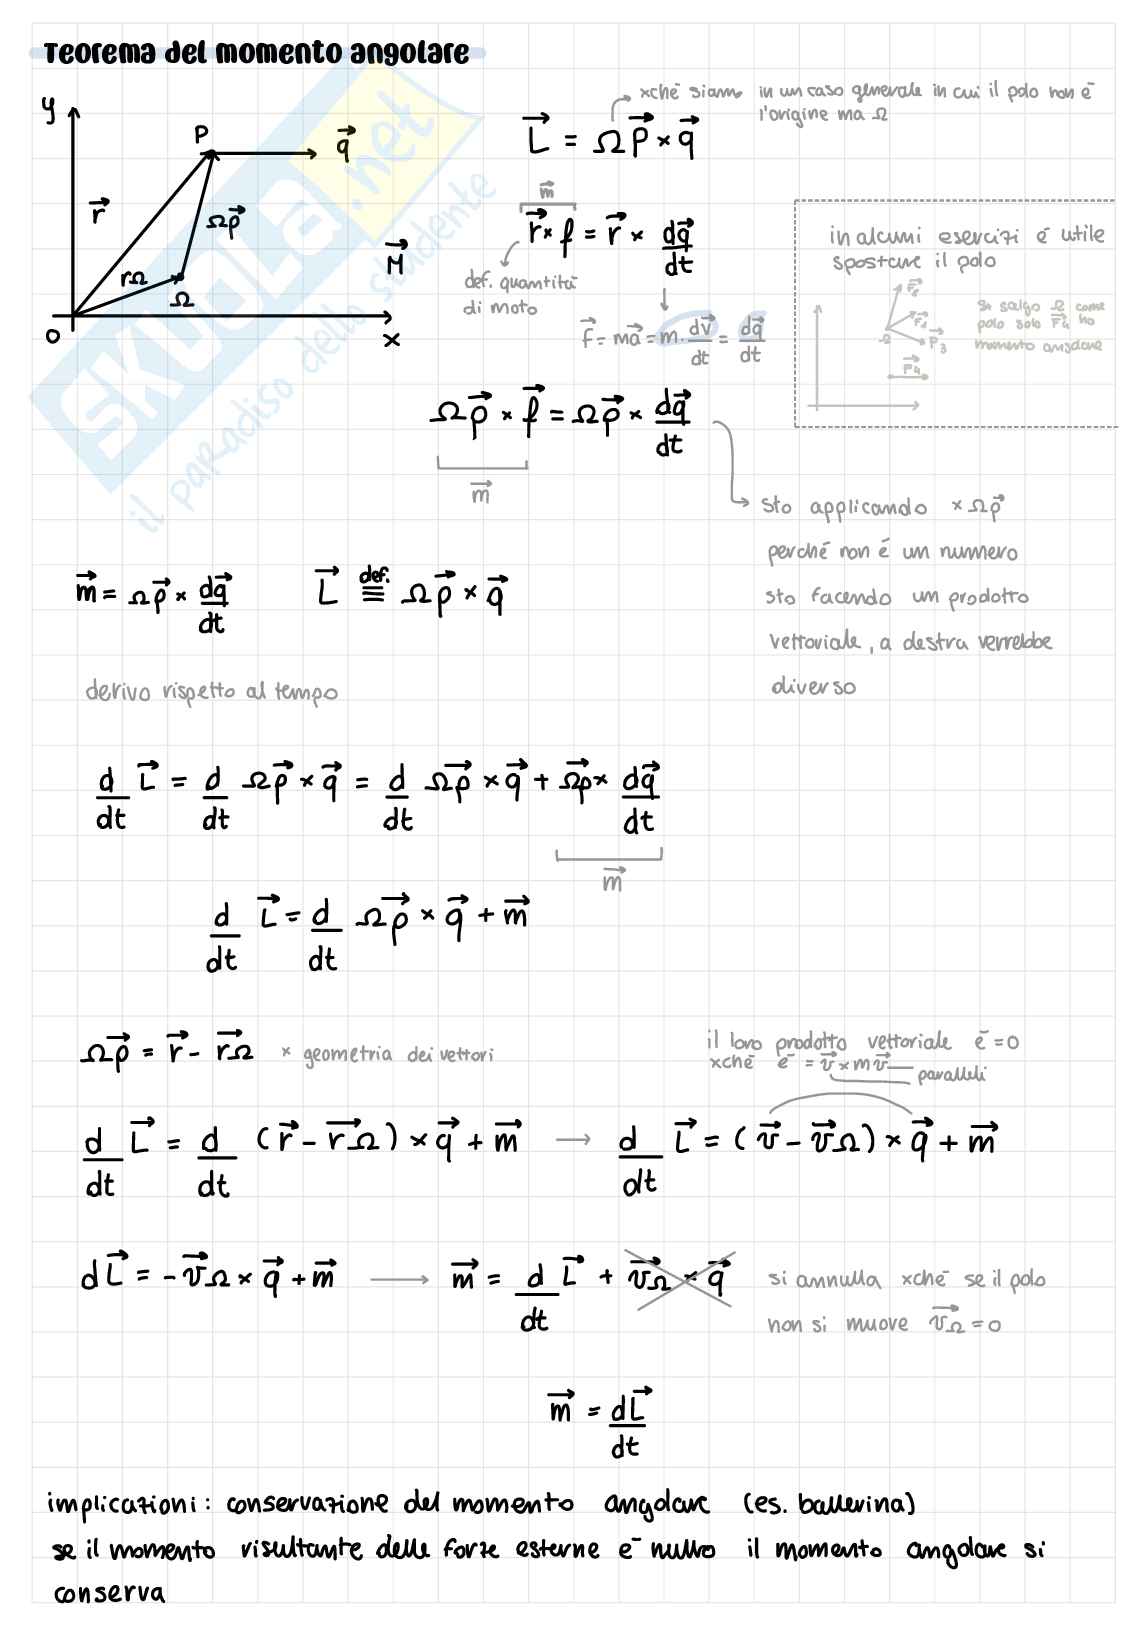 Teorema del momento angolare
y
P
q⃗
r⃗
ΩP⃗
rΩ
Ω
M⃗
O
x
xchè siamo in un caso generale in cui il polo non è
l'origine ma Ω
L⃗ = ΩP⃗ × q⃗
m⃗
r⃗ × f = r⃗ × dq⃗/dt
def. quantità
di moto
f⃗ = ma⃗ = m · dv⃗/dt = dq⃗/dt
in alcuni esercizi è utile
spostare il polo
Ω
F⃗3
F⃗4
Se scelgo Ω come
polo solo F⃗4 ha
momento angolare
ΩP⃗ × f⃗ = ΩP⃗ × dq⃗/dt
m⃗
sto applicando × ΩP⃗
perchè non è un numero
sto facendo un prodotto
vettoriale, a destra verrebbe
diverso
m⃗ = ΩP⃗ × dq⃗/dt L⃗ def. ≡ ΩP⃗ × q⃗
derivo rispetto al tempo
d/dt L⃗ = d/dt ΩP⃗ × q⃗ = d/dt ΩP⃗ × q⃗ + ΩP⃗ × dq⃗/dt
m⃗
d/dt L⃗ = d/dt ΩP⃗ × q⃗ + m⃗
ΩP⃗ = r⃗ - r⃗Ω × geometria dei vettori
il loro prodotto vettoriale è = 0
xchè è = v⃗ × mv⃗
paralleli
d/dt L⃗ = d/dt (r⃗ - r⃗Ω) × q⃗ + m⃗ → d/dt L⃗ = (v⃗ - v⃗Ω) × q⃗ + m⃗
dL⃗ = - v⃗Ω × q⃗ + m⃗ → m⃗ = d/dt L⃗ + v⃗Ω × q⃗
si annulla xchè se il polo
non si muove v⃗Ω = 0
m⃗ = dL⃗/dt
implicazioni: conservazione del momento angolare (es. ballerina)
se il momento risultante delle forze esterne è nullo il momento angolare si
conserva
SKUOLa.net
il paradiso dello studente